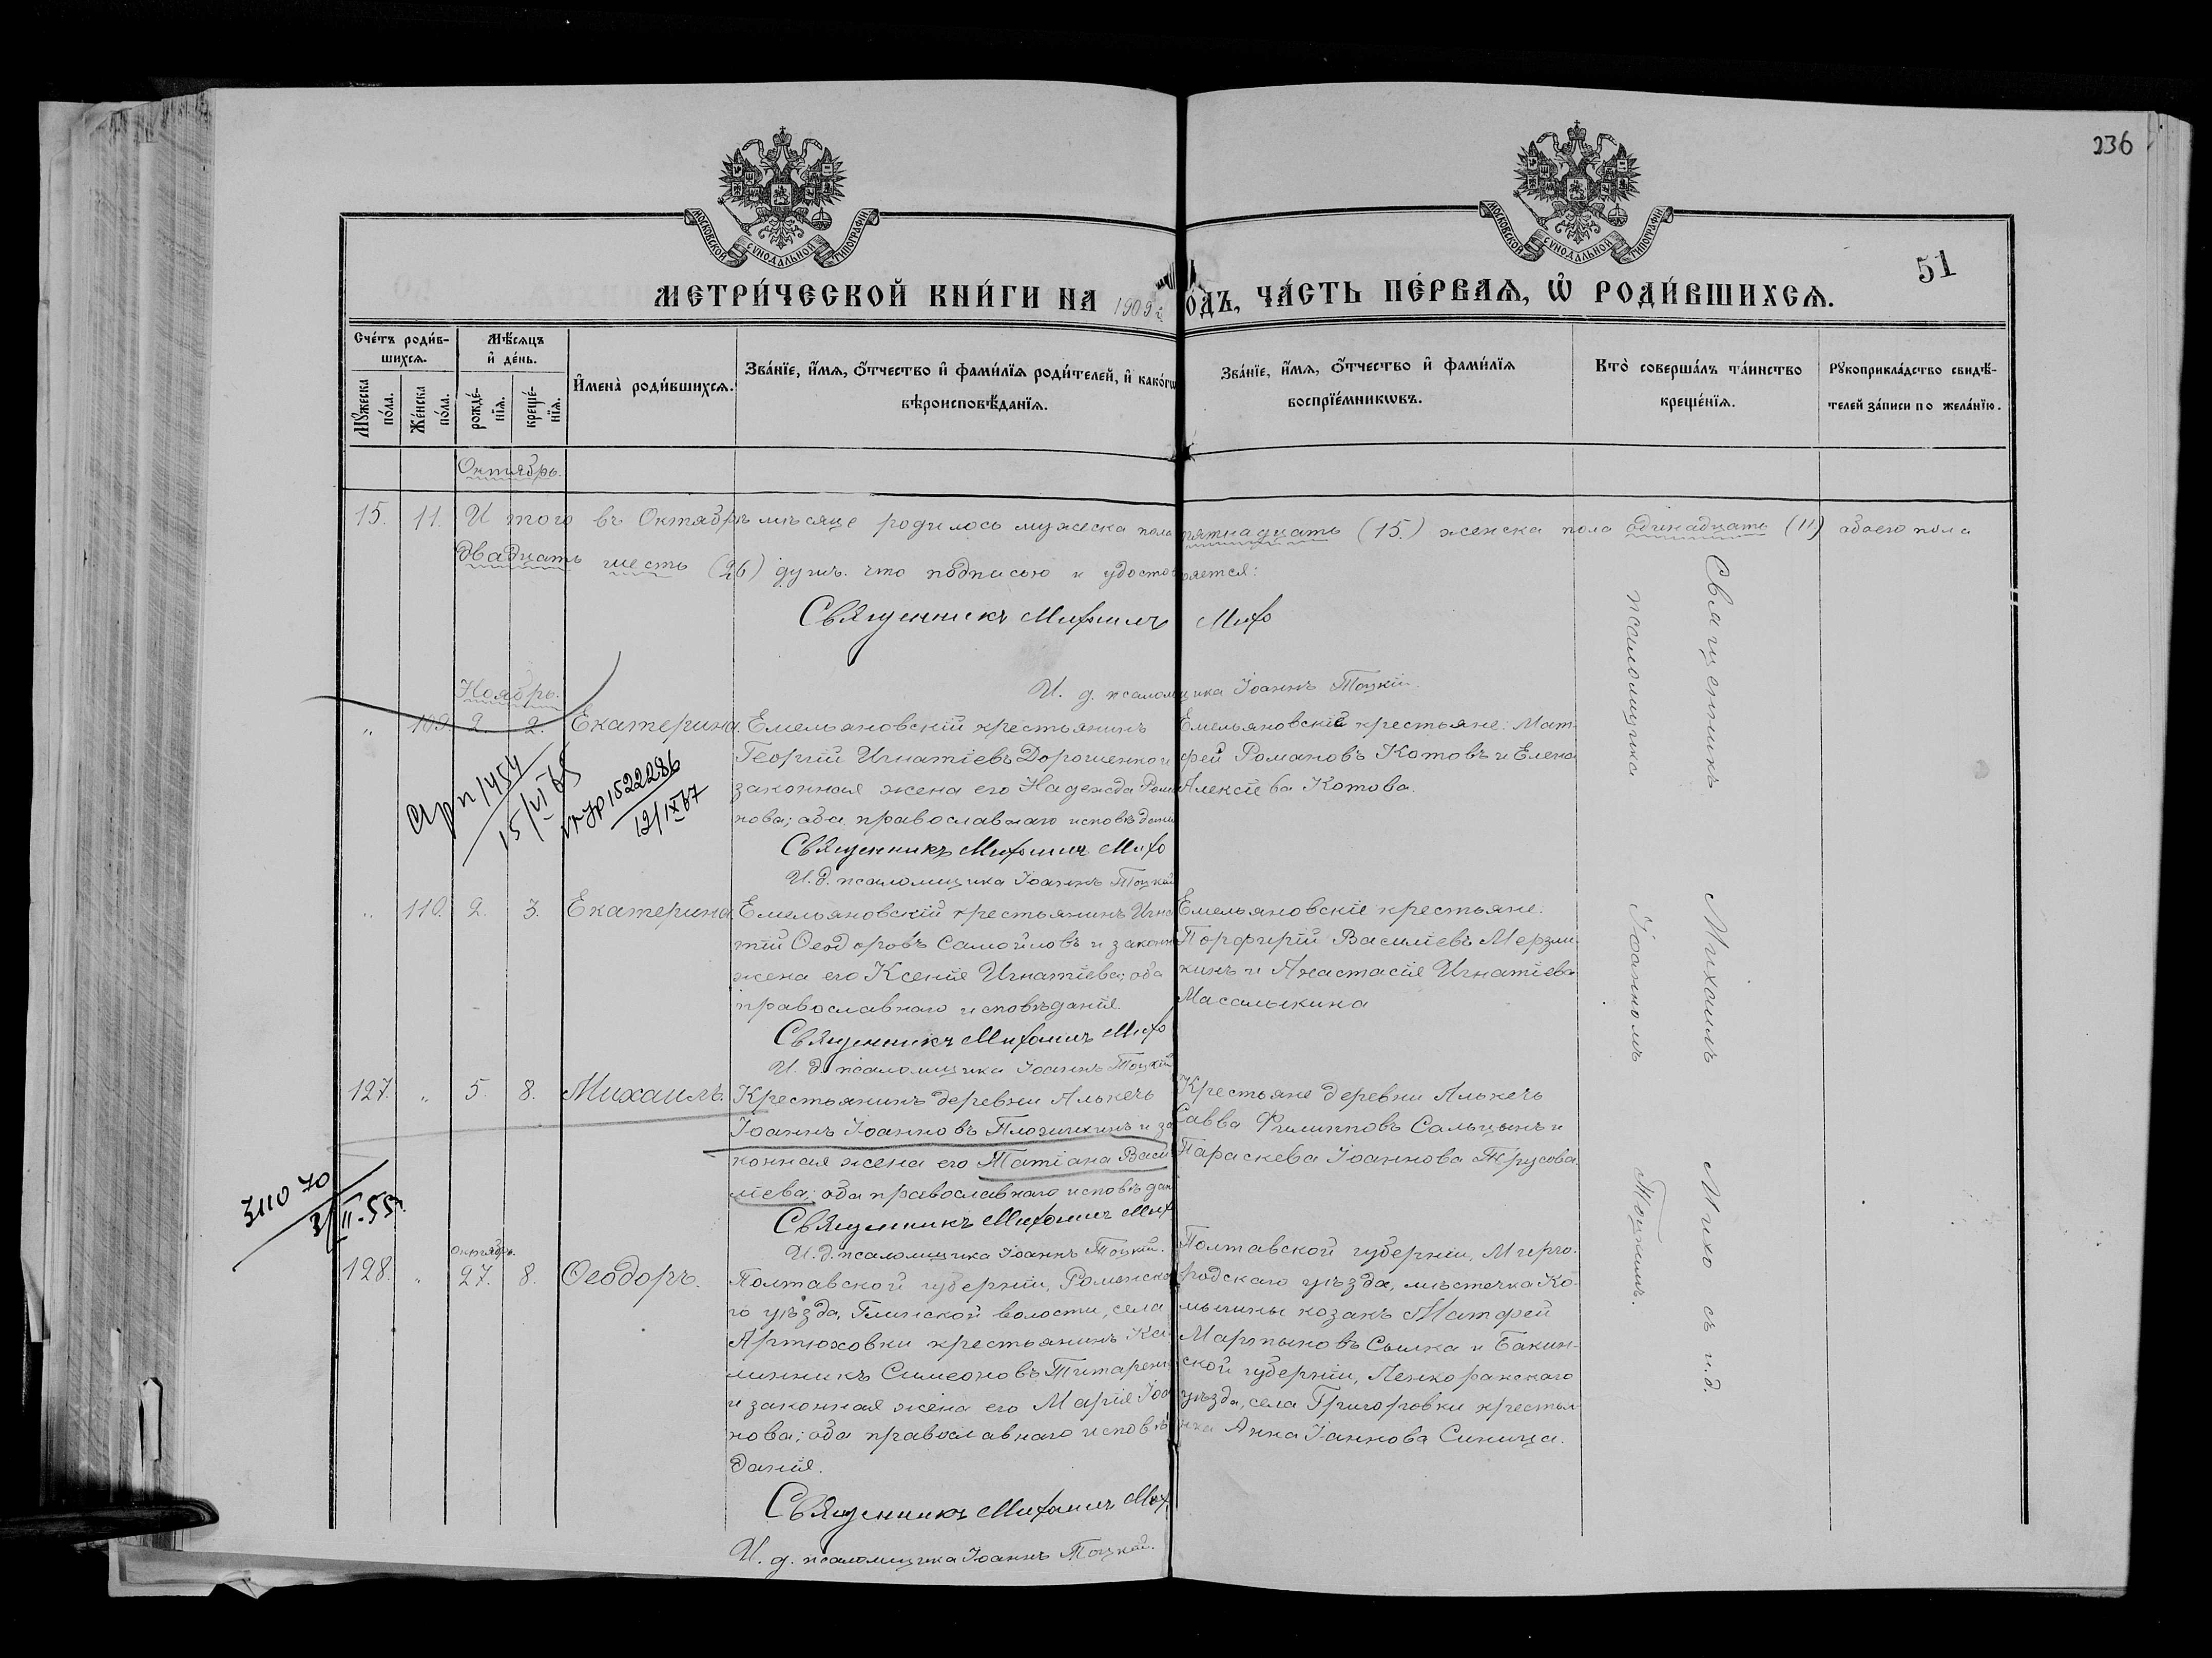 236
51
МОСКОВСКОЙ СУНОДАЛЬНОЙ ТИПОГРАФІИ
МОСКОВСКОЙ СУНОДАЛЬНОЙ ТИПОГРАФІИ
МЕТРИ́ЧЕСКОЙ КНИ́ГИ НА 1909 й
О́ДЪ, ЧА́СТЬ ПЕ́РВАѦ, Ѡ҆ РОДИ́ВШИХСѦ.
Сче́тъ роди́в-
шихсѧ.
Мѣ́сѧцъ
и҆ де́нь.
Мꙋ́жеска
по́ла.
Же́нска
по́ла.
рожде́-
нїѧ.
креще́-
нїѧ.
И҆мена̀ роди́вшихсѧ.
Зва́нїе, и҆́мѧ, ѻ҆́тчество и҆ фами́лїѧ роди́телей, и҆ како́гѡ
вѣроисповѣ́данїѧ.
Зва́нїе, и҆́мѧ, ѻ҆́тчество и҆ фами́лїѧ
воспрїе́мникѡвъ.
Кто̀ соверша́лъ та́инство
креще́нїѧ.
Рꙋкоприкла́дство свидѣ́-
телей за́писи по жела́нїю.
Октябрь.
15. 11. И того въ Октябрѣ мѣсяце родилось мужеска пола пятнадцать (15.) женска пола одинадцать (11) обоего пола
двадцать шесть (26) душъ. что подписью и удостовряется:
Священникъ Михаилъ Михо
И. д. псаломщика Іоаннъ Тоцкій.
Ноябрь.
" 109. 2. 2. Екатерина.
Емельяновскій крестьянинъ
Георгій Игнатіевъ Дорошенко и
законная жена его Надежда Рома
нова; оба православнаго исповѣдані
Священникъ Михаилъ Михо
И. д. псаломщика Іоаннъ Тоцкій
Емельяновскіе крестьяне: Мат-
фей Романовъ Котовъ и Елена
Алексіева Котова.
1454
15/VI 65
1522286
12/IX 67
" 110. 2. 3. Екатерина.
Емельяновскій крестьянинъ Игна
тій Ѳеодоровъ Самойловъ и законн
жена его Ксенія Игнатіева; оба
православнаго исповѣданія.
Священникъ Михаилъ Михо
И. д. псаломщика Іоаннъ Тоцкій
Емельяновскіе крестьяне:
Порфирій Василіевъ Мерзли-
кинъ и Анастасія Игнатіева
Масалыкина
127. " 5. 8. Михаилъ.
Крестьянинъ деревни Алькечь
Іоаннъ Іоанновъ Плохихинъ и за
конная жена его Татіана Васи
ліева; оба православнаго исповѣдан
Священникъ Михаилъ Мих
И. д. псаломщика Іоаннъ Тоцкій.
Крестьяне деревни Алькечь
Савва Филипповъ Сальцынъ и
Параскева Іоаннова Трусова.
II-55г.
Октябрь.
128. " 27. 8. Ѳеодоръ.
Полтавской губерніи, Роменска
го уѣзда, Глинской волости, села
Артюховки крестьянинъ Ка
линникъ Симеоновъ Титаренк
и законная жена его Марія Іоа
нова; оба православнаго исповѣ
данія.
Священникъ Михаилъ Мих
И. д. псаломщика Іоаннъ Тоцкій.
Полтавской губерніи, Мирго-
родскаго уѣзда, мѣстечка Ко-
мышны козакъ Матфей
Мартыновъ Сылка и Бакин-
ской губерніи, Ленкоранскаго
уѣзда, села Григорьевки крестья
нка Анна Іаннова Синица.
Священникъ Михаилъ Михо съ и.д.
псаломщика Іоанномъ Тоцкимъ.